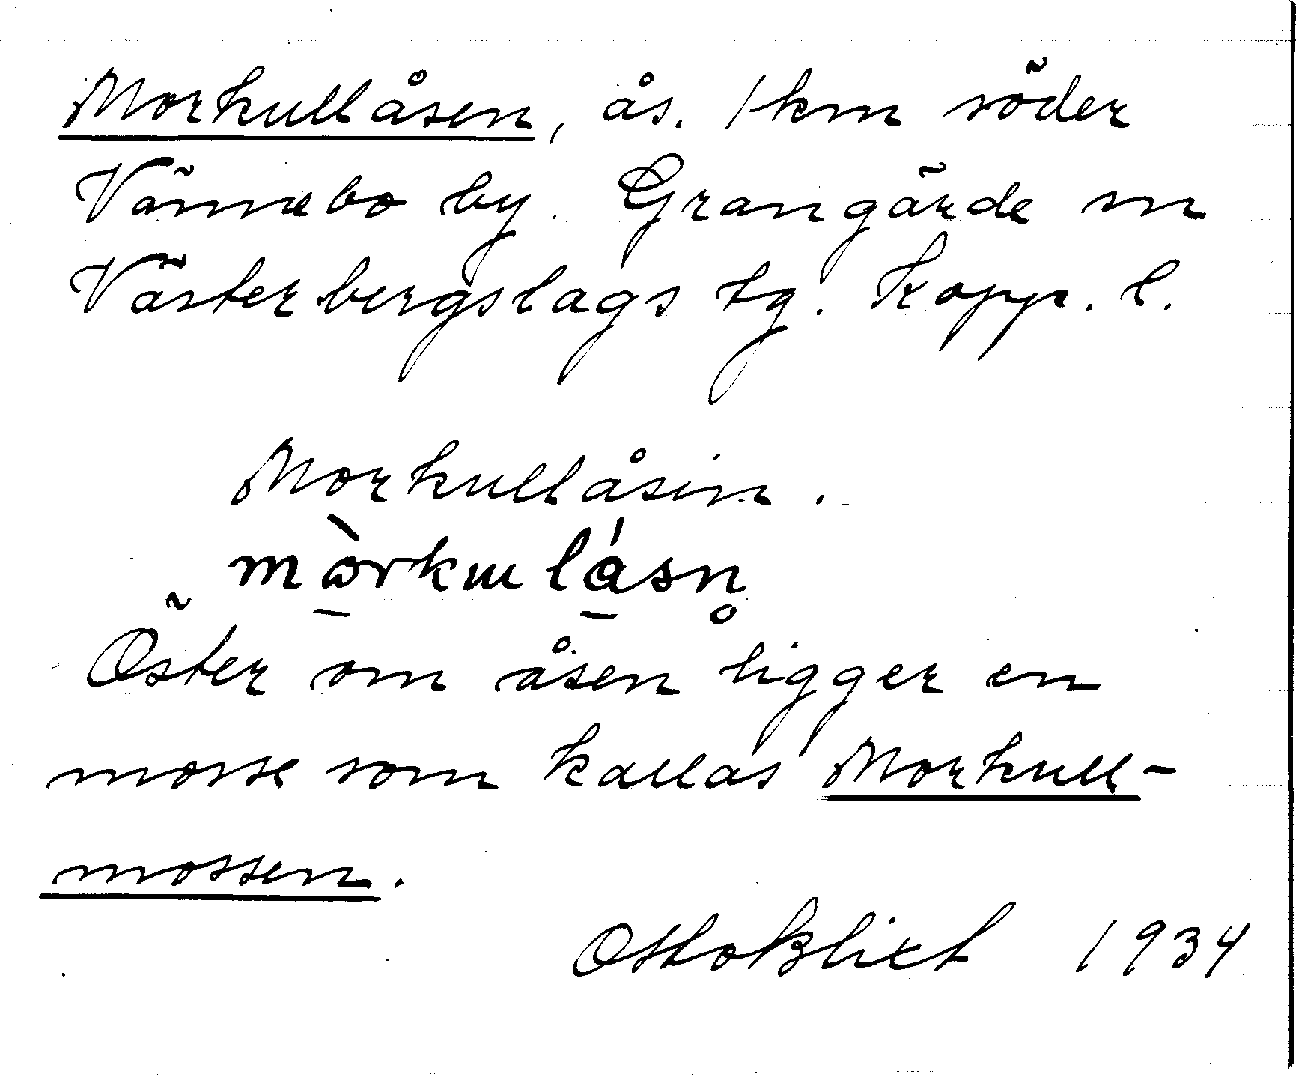 Morkullåsen, ås. 1 km söder
Vännebo by. Grangärde sn
Västerbergslags tg. Kopp. l.
Morkullåsin.
mòrkulåsn
Öster om åsen ligger en
mosse som kallas Morkull-
mossen.
Otto Blixt 1934